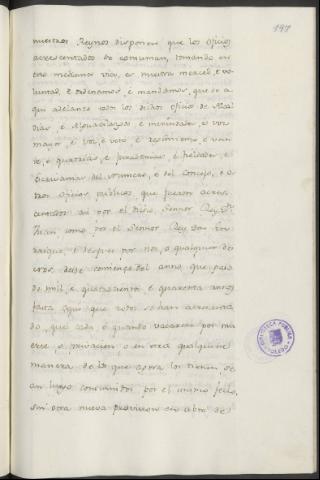 197
nuestros Reynos disponen que los oficios
acrescentados se consuman, tomando en
esto mediana via, es nuestra merced, e vo
luntad, e ordenamos, e mandamos, que de a
qui adelante todos los dichos oficios de Alcal
dias, e Alguacilazgos e merindades, e voz
mayor, e voz, e voto, e regimiento, e veint
e, e juradorias, e fieldades, e
Escrivanias del numero, e del Concejo, e o
tros oficios publicos, que fueron acres
centados asi por el dicho Señor Rey D.
Juan, como por el Señor Rey don En
rrique, e despues por nos, o qualquier de
nos desde comienzo del anno que paso
de mil, e quatrocientos e quarenta annos
fasta aqui que todos se han acrescenta
do, que cada e quando vacaren por mu
erte o privacion o en otra qualquier
manera de los que agora los tienen, se
an luego consumidos por el mismo fecho,
sin otra nueva provision en abto de
BIBLIOTECA PUBLICA
TOLEDO